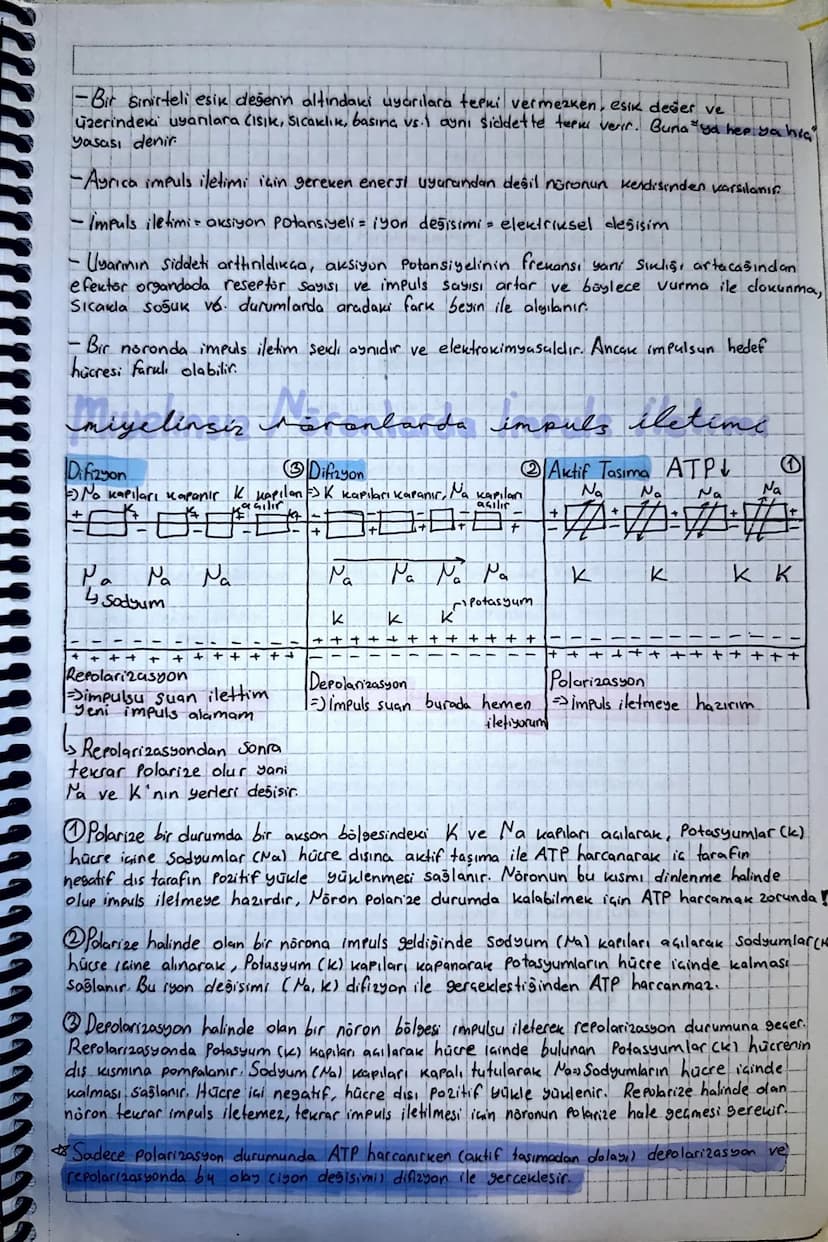 - Bir sinirteli esik değerin altındaki uyarılara tepki vermezken, esik değer ve
üzerindeki uyarılara (ısık, sıcaklık, basınç vs.) aynı siddette tepki verir. Buna "ya hep ya hiç"
yasası denir.
- Ayrıca impuls iletimi için gereken enerji uyarandan değil nöronun kendisinden karsılanır.
- İmpuls iletimi = aksiyon potansiyeli = iyon değisimi = elektriksel değisim
- Uyarının siddeti arttırıldıkça, aksiyon potansiyelinin frekansı yani sıklığı artacağından
efektör organdada reseptör sayısı ve impuls sayısı artar ve böylece vurma ile dokunma,
sıcakla soğuk vb. durumlarda aradaki fark beyin ile algılanır.
- Bir nöronda impuls iletim sekli aynıdır ve elektrokimyasaldır. Ancak impulsun hedef
hücresi farklı olabilir.
Miyelinsiz Nöronlarda İmpuls İletimi
miyelinsiz nöronlarda impuls iletimi
Difizyon ③ Difizyon ② Aktif Tasıma ATP↓ ①
=> Na kapıları kapanır K kapıları açılır => K kapıları kapanır, Na kapıları açılır Na Na Na Na
+ K + K + K + K +
Na Na Na Na Na Na Na K K K K
↳ Sodyum K K K → Potasyum
- - - - - - - - - - - - + + + + + + + + + + + + - - - - - - - - - - - -
+ + + + + + + + + + + + - - - - - - - - - - - - + + + + + + + + + + + +
Repolarizasyon Depolarizasyon Polarizasyon
=> impulsu suan ilettim => impuls suan burada hemen => impuls iletmeye hazırım
yeni impuls alamam iletiyorum
↳ Repolarizasyondan sonra
tekrar polarize olur yani
Na ve K'nın yerleri değisir.
① Polarize bir durumda bir akson bölgesindeki K ve Na kapıları açılarak, Potasyumlar (K)
hücre içine Sodyumlar (Na) hücre dısına aktif taşıma ile ATP harcanarak iç tarafın
negatif dıs tarafın pozitif yükle yüklenmesi sağlanır. Nöronun bu kısmı dinlenme halinde
olup impuls iletmeye hazırdır, Nöron polarize durumda kalabilmek için ATP harcamak zorunda!
② Polarize halinde olan bir nörona impuls geldiğinde sodyum (Na) kapıları açılarak sodyumlar
hücre içine alınarak, Potasyum (K) kapıları kapanarak potasyumların hücre içinde kalması
sağlanır. Bu iyon değisimi (Na, K) difizyon ile gerçekleştiğinden ATP harcanmaz.
③ Depolarizasyon halinde olan bir nöron bölgesi impulsu ileterek repolarizasyon durumuna geçer.
Repolarizasyonda Potasyum (K) kapıları açılarak hücre içinde bulunan Potasyumlar (K) hücrenin
dıs kısmına pompalanır. Sodyum (Na) kapıları kapalı tutularak Sodyumların hücre içinde
kalması sağlanır. Hücre içi negatif, hücre dısı pozitif yükle yüklenir. Repolarize halinde olan
nöron tekrar impuls iletemez, tekrar impuls iletilmesi için nöronun Polarize hale geçmesi gerekir.
* Sadece polarizasyon durumunda ATP harcanırken (aktif tasımadan dolayı) depolarizasyon ve
repolarizasyonda bu olay (iyon değisimi) difizyon ile gerçeklesir.